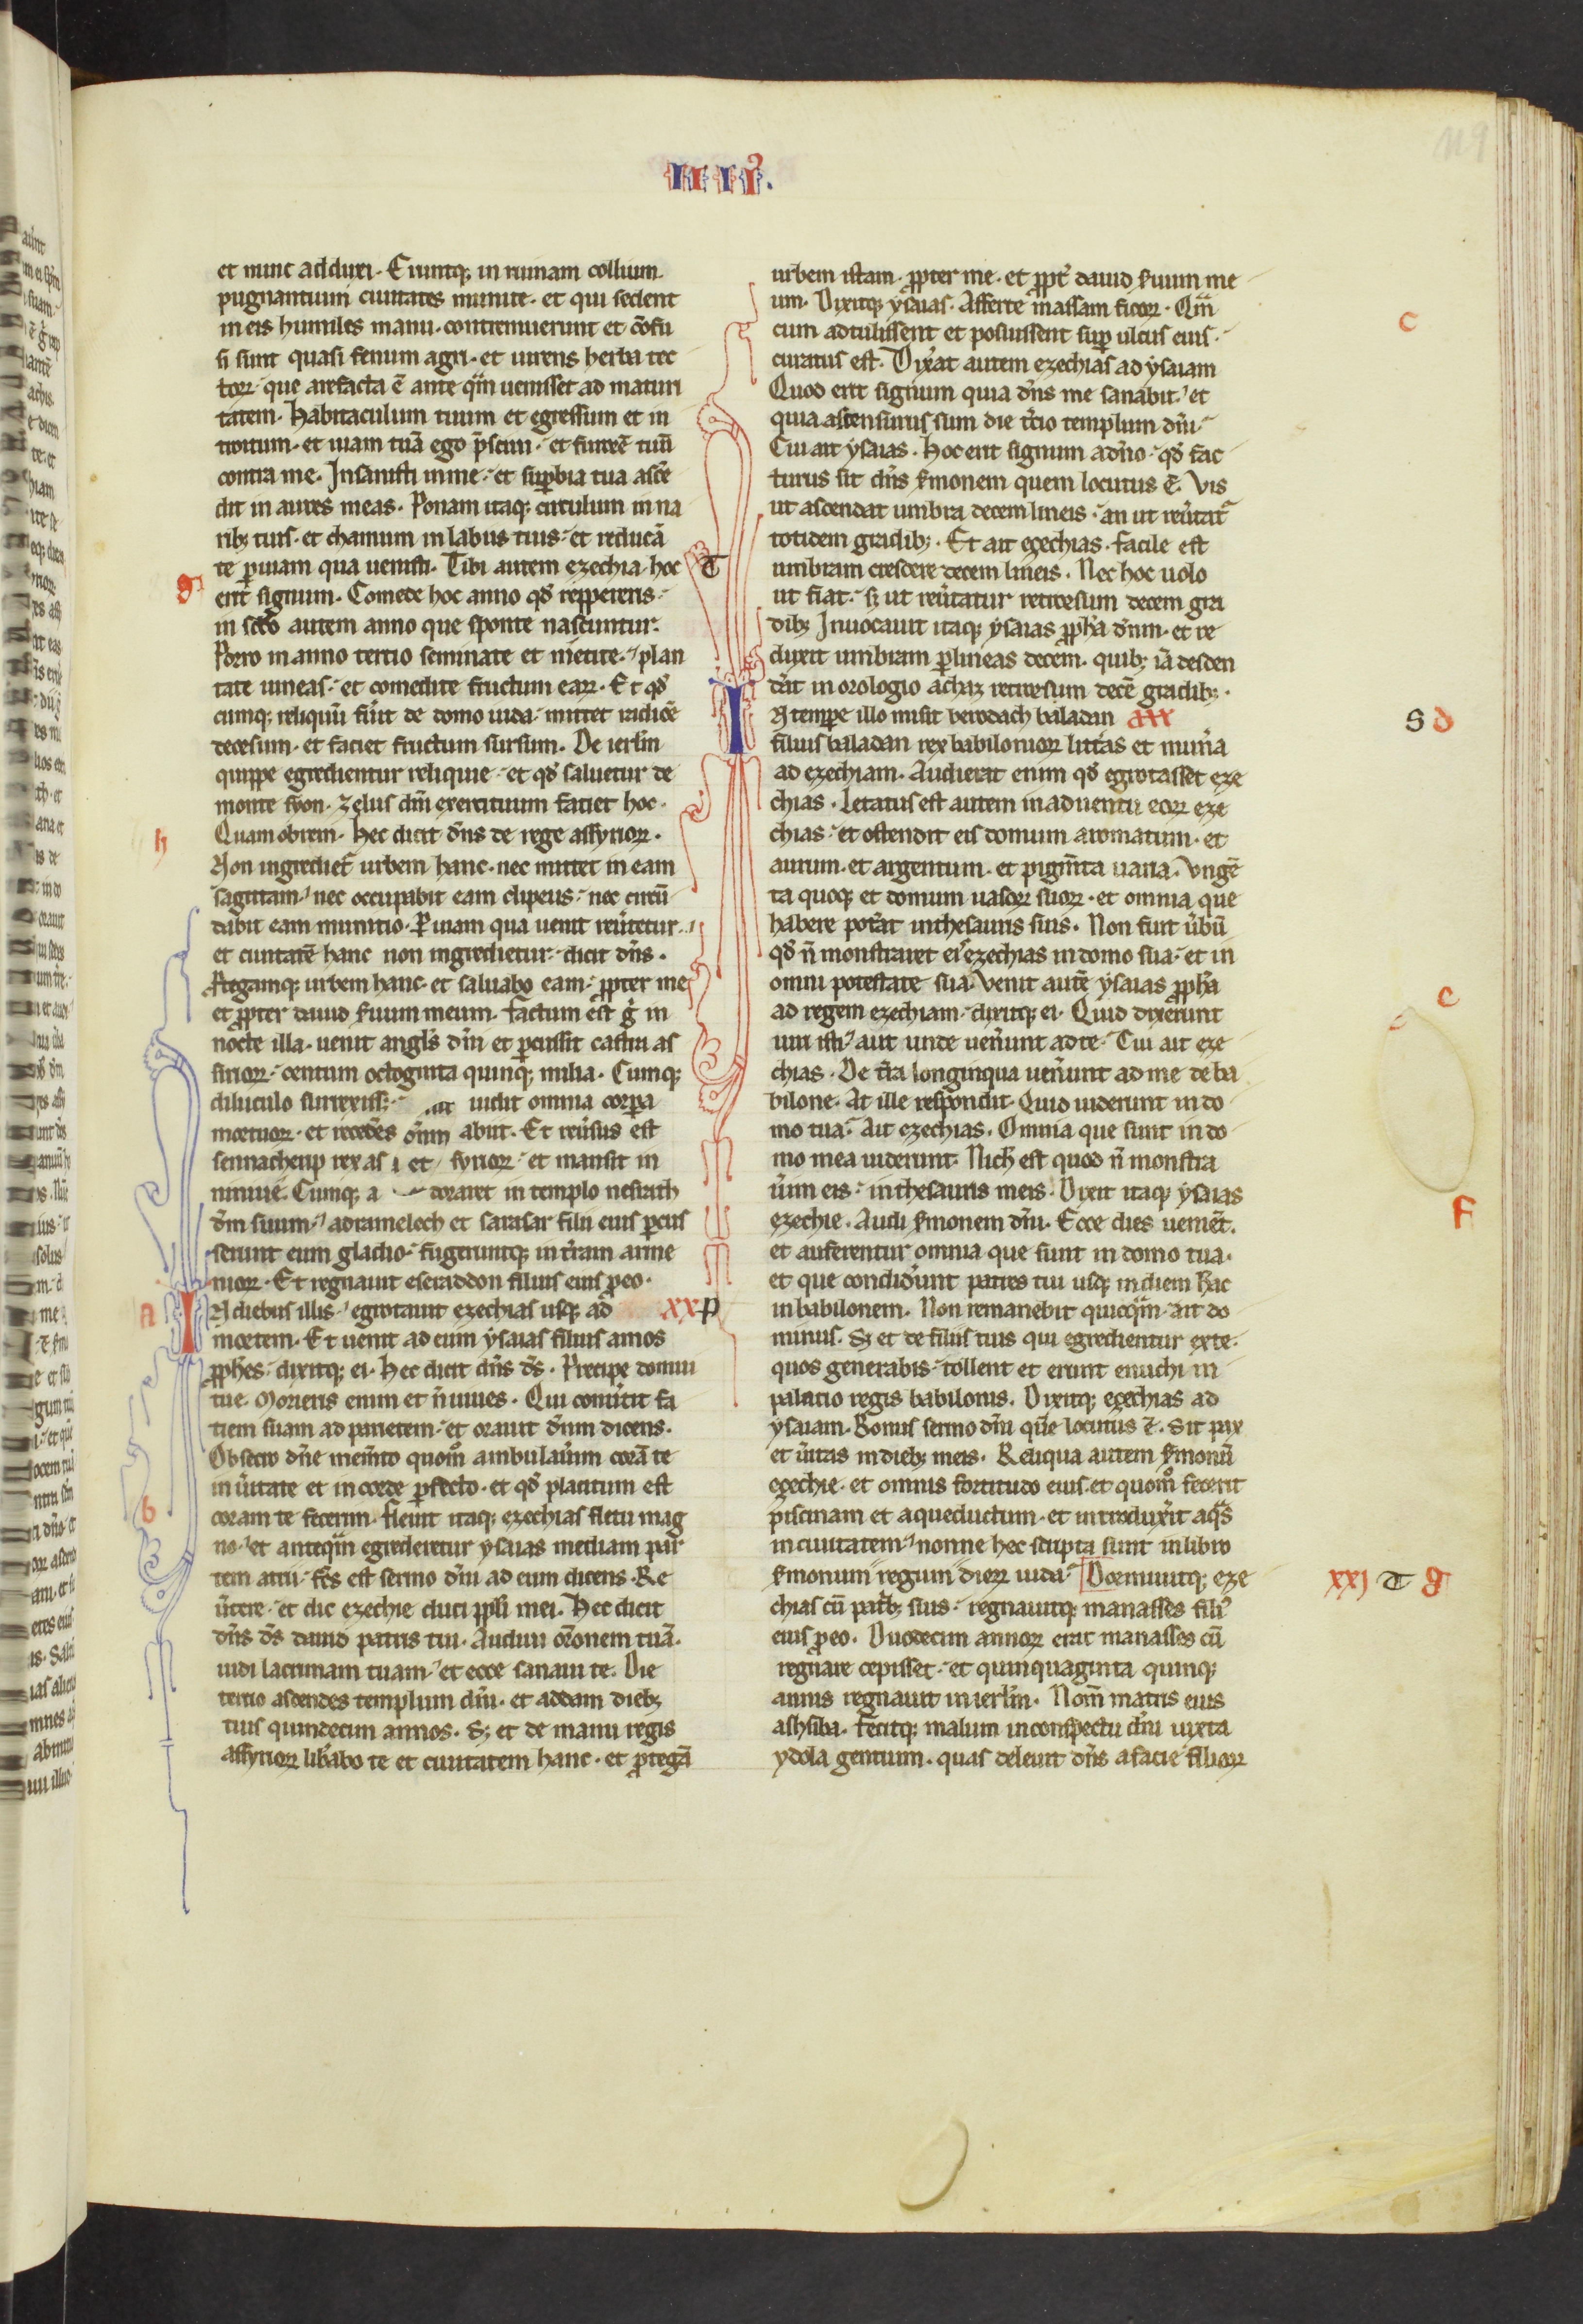 IIIIꝰ.
119
et nunc adduxi. Eruntqꝫ in ruinam collium
pugnantium ciuitates munite. et qui sedent
in eis humiles manu. contremuerunt et cōfu
si sunt quasi fenum agri. et uirens herba tec
torꝝ. que arefacta ē ante qͣm uenisset ad maturi
tatem. Habitaculum tuum et egressum et in
troitum. et uiam tuā ego p̄sciui. et furorē tuū
contra me. Insanisti in me. et suꝑbia tua ascē
dit in aures meas. Ponam itaqꝫ circulum in na
ribꝫ tuis. et chamum in labiis tuis. et reducā
te ꝑ uiam qua uenisti. Tibi autem ezechia hoc T
g erit signum. Comede hoc anno qd̓ reppereris.
in scd̓o autem anno que sponte nascuntur.
Porro in anno tertio seminate et metite. plan
tate uineas. et comedite fructum earꝝ. Et qd̓
cumqꝫ reliquū fu̓it de domo iuda. mittet radicē
deorsum. et faciet fructum sursum. De ierlm̄
quippe egredientur reliquie. et qd̓ saluetur de
monte syon. Zelus dn̄i exercituum faciet hoc.
h Quamobrem. hec dicit dn̄s de rege assyriorꝝ.
Non ingrediet᷑ urbem hanc. nec mittet in eam
sagittam. nec occupabit eam clipeus. nec circū
dabit eam munitio. Per uiam qua uenit reu̓tetur.
et ciuitatē hanc non ingredietur. dicit dn̄s.
Protegamqꝫ urbem hanc. et saluabo eam. ꝓpter me
et ꝓpter dauid s̓uum meum. Factum est g̓ in
nocte illa. uenit angl̓s dn̄i et ꝑcussit castra as
siriorꝝ. centum octoginta quinqꝫ milia. Cumqꝫ
diluculo surrexiss; uidit omnia corpora
mortuorꝝ. et recedēs abiit. Et reu̓sus est
sennacherip rex as syriorꝝ. et mansit in
niniue. Cumqꝫ a doraret in templo nesrath
dm̄ suum. adramelech et sarasar filii eius ꝑcus
serunt eum gladio. fugeruntqꝫ in t̓ram arme
niorꝝ. Et regnauit eseraddon filius eius ꝓ eo.
a IN diebus illis. egrotauit ezechias usqꝫ ad XX P
mortem. Et uenit ad eum ysaias filius amos
ꝓph̓es. dixitqꝫ ei. Hec dicit dn̄s ds̄. Precipe domui
tue. Morieris enim et n̄ uiues. Qui conu̓tit fa
ciem suam ad parietem. et orauit dn̄um dicens.
Obsecro dn̄e mem̄to quom̊ ambulau̓im corā te
in u̓itate et in corde ꝑfecto. et qd̓ placitum est
b coram te fecerim. Fleuit itaqꝫ ezechias fletu mag
no. et anteqͣm egrederetur ysaias mediam par
tem atrii. fc̄s est sermo dn̄i ad eum dicens. Re
u̓tere. et dic ezechie duci ppl̓i mei. Hec dicit
dn̄s ds̄ dauid patris tui. Audiui or̄onem tuā.
uidi lacrimam tuam. et ecce sanaui te. Die
tertio ascendes templum dn̄i. et addam diebꝫ
tuis quindecim annos. Sꝫ et de manu regis
assyriorꝝ lib̓abo te et ciuitatem hanc. et ꝓtegā
urbem istam. ꝓpter me. et ꝓpt̓ dauid s̓uum me
um. Dixitqꝫ ysaias. Afferte massam ficorꝝ. Qͣm
cum adtulissent et posuissent suꝑ ulcus eius. c
curatus est. Dix̓at autem ezechias ad ysaiam
Quod erit signum quia dn̄s me sanabit. et
quia ascensurus sum die t̓cio templum dn̄i.
Cui ait ysaias. Hoc erit signum a dn̄o. qd̓ fac
turus sit dn̄s s̓monem quem locutus ē. Vis
ut ascendat umbra decem lineis. an ut reu̓tat᷑
totidem gradibꝫ. Et ait ezechias. Facile est
umbram crescere decem lineis. Nec hoc uolo
ut fiat. sꝫ ut reu̓tatur retrorsum decem gra
dibꝫ. Inuocauit itaqꝫ ysaias ꝓph̓a dn̄um. et re
duxit umbram ꝑ lineas decem. quibꝫ iā descen
d̓at in orologio achaz retrorsum decē gradibꝫ.
IN tempore illo misit berodach baladan S d
filius baladan rex babiloniorꝝ litt̓as et mun̓a
ad ezechiam. Audierat enim qd̓ egrotasset eze
chias. Letatus est autem in aduentu eorꝝ eze
chias. et ostendit eis domum aromatum. et
aurum. et argentum. et pigm̄ta uaria. Vngē
ta quoqꝫ et domum uasorꝝ suorꝝ. et omnia que
habere pot̓at in thesauris suis. Non fuit u̓bū
qd̓ n̄ monstraret eis ezechias in domo sua. et in
omni potestate sua. Venit autē ysaias ꝓph̓a e
ad regem ezechiam. dixitqꝫ ei. Quid dixerunt
uiri isti. aut unde uen̓unt ad te. Cui ait eze
chias. De t̓ra longinqua uen̓unt ad me de ba
bilone. At ille respondit. Quid uiderunt in do
mo tua. Ait ezechias. Omnia que sunt in do
mo mea uiderunt. Nich̓ est quod n̄ monstra
u̓im eis. in thesauris meis. Dixit itaqꝫ ysaias
ezechie. Audi s̓monem dn̄i. Ecce dies uenient. F
et auferentur omnia que sunt in domo tua.
et que condid̓unt patres tui usqꝫ in diem hāc
in babilonem. Non remanebit quicqͣm. ait do
minus. Sꝫ et de filiis tuis qui egredientur ex te.
quos generabis. tollent et erunt enuchi in
palatio regis babilonis. Dixitqꝫ ezechias ad
ysaiam. Bonus sermo dn̄i quē locutus ē. Sit pax
et u̓itas in diebꝫ meis. Reliqua autem s̓monū
ezechie. et omnis fortitudo eius. et quom̊ fecerit
piscinam et aqueductum. et introdux̓it aqͣs
in ciuitatem. nonne hec scripta sunt in libro
s̓monum regum dierꝝ iuda. Dormiuitqꝫ eze XXI T g
chias cū pat̓bꝫ suis. regnauitqꝫ manasses filiꝰ
eius ꝓ eo. Duodecim annorꝝ erat manasses cū
regnare cepisset. et quinquaginta quinqꝫ
annis regnauit in ierlm̄. Nom̄ matris eius
aphsiba. Fecitqꝫ malum in conspectu dn̄i iuxta
ydola gentium. quas deleuit dn̄s a facie filiorꝝ